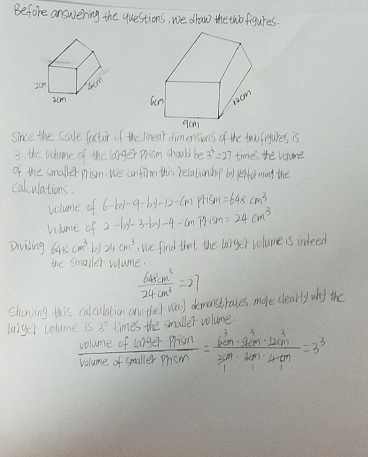 Before answering the questions, we draw the two figures.
2cm 2cm 4cm
6cm 9cm 12cm
Since the scale factor of the linear dimensions of the two figures, is
3 the volume of the larger prism should be 3³=27 times the volume
of the smaller prism. We confirm this relationship by the
calculations.
volume of 6-by-9-by-12-cm prism=648 cm³
volume of 2-by-3-by-4-cm prism=24 cm³
Dividing 648 cm³ by 24 cm³, we find that the larger volume is indeed
the smaller volume.
648cm³/24cm³=27
Showing this calculation another way demonstrates more clearly why the
larger volume is 3³ times the smaller volume.
volume of larger prism/volume of smaller prism = 6cm · 9cm · 12cm/2cm · 3cm · 4cm = 3³
3 3 3
1 1 1